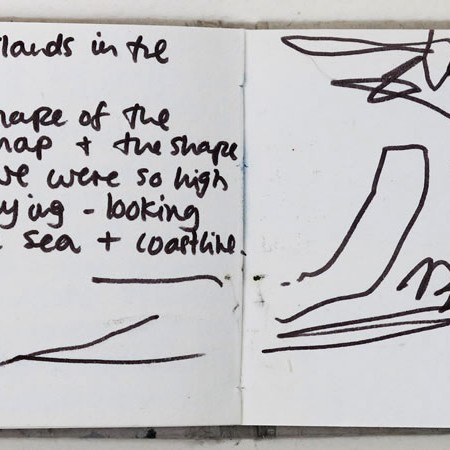 lands in the
hape of the
map + the shape
we were so high
ying - looking
sea + coastline.